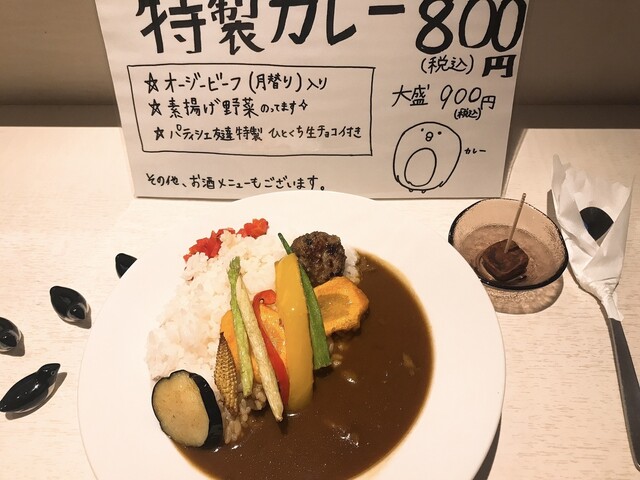 特製カレー 800円
(税込)
☆ オージービーフ(月替り)入り
☆ 素揚げ野菜のってます✧
☆ パティシエ友達特製 ひとくち生チョコ付き
大盛 900円
(税込)
カレー
その他、お酒メニューもございます。